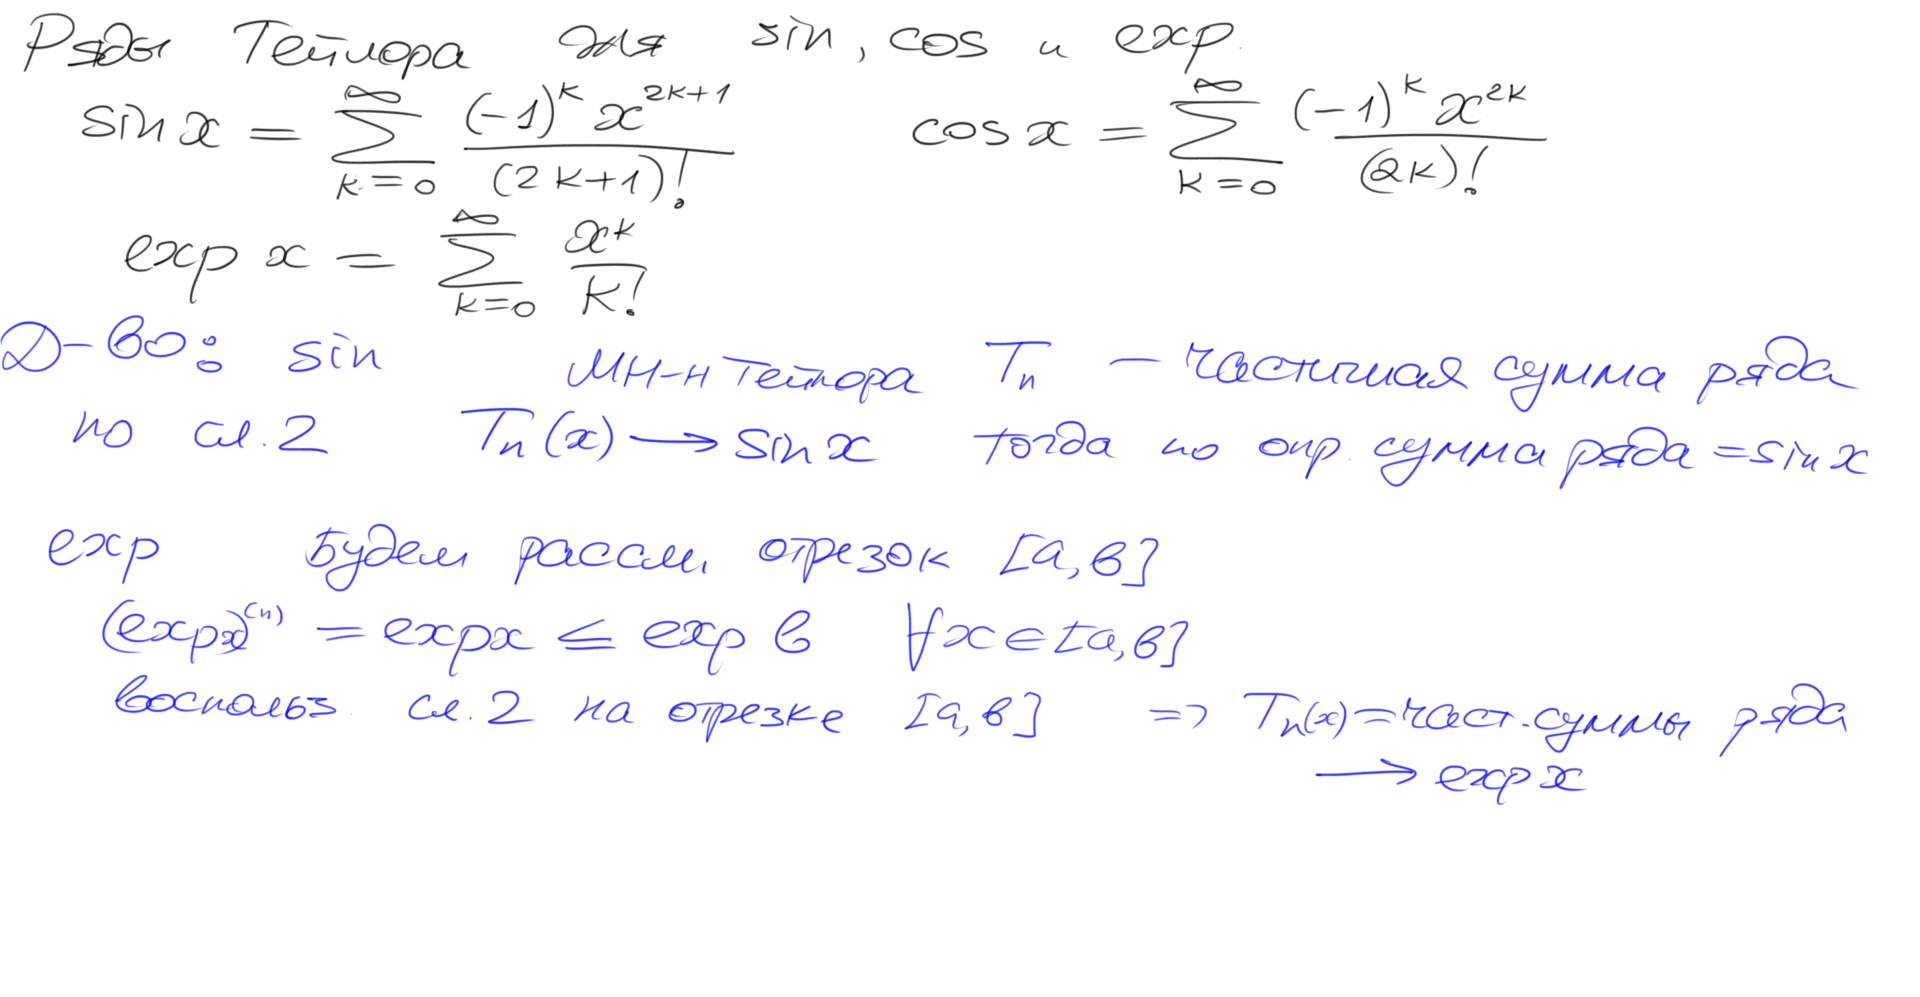 Ряды Тейлора для sin, cos и exp.
sin x = ∑_{k=0}^{∞} (-1)^k x^{2k+1} / (2k+1)!   cos x = ∑_{k=0}^{∞} (-1)^k x^{2k} / (2k)!
exp x = ∑_{k=0}^{∞} x^k / k!
Д-во: sin   мн-н Тейлора T_n – частичная сумма ряда
по сл. 2   T_n(x) ⟶ sin x   тогда по опр. сумма ряда = sin x
exp   Будем рассм. отрезок [a, b]
(exp x)^{(n)} = exp x ≤ exp b   ∀x ∈ [a, b]
воспольз. сл. 2 на отрезке [a, b]   => T_n(x) = част. суммы ряда
⟶ exp x